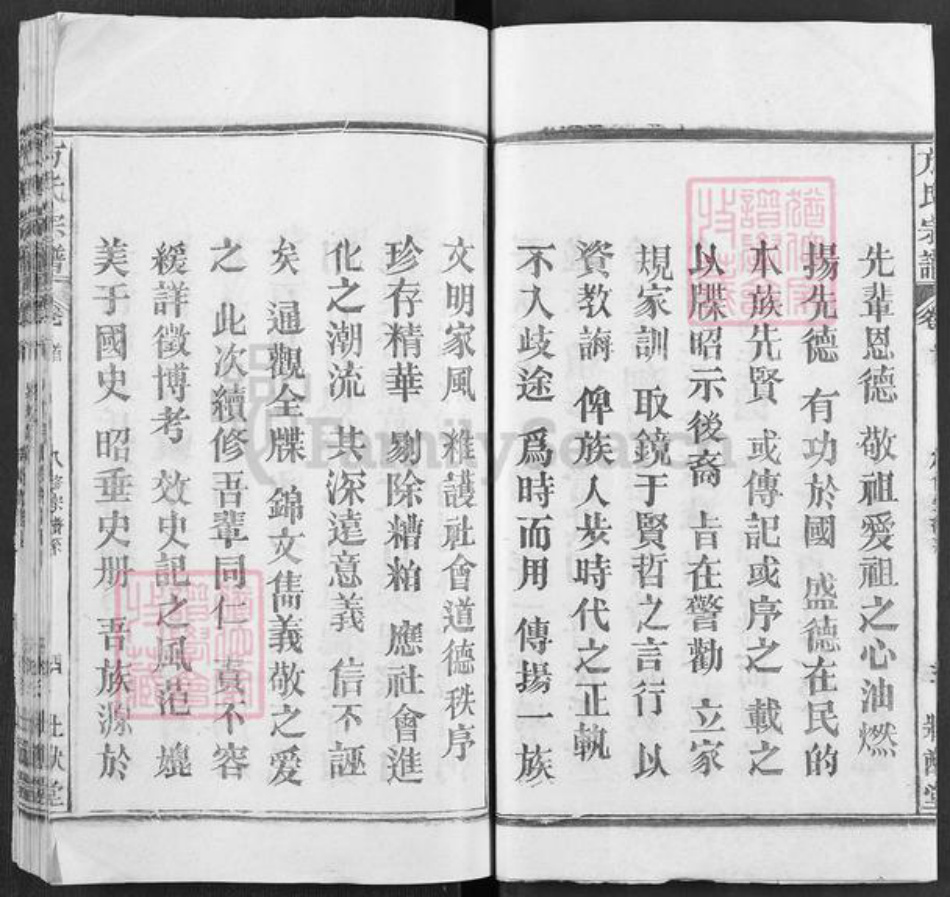 先輩恩德 敬祖愛祖之心油燃
揚先德 有功於國 盛德在民的
本族先賢 或傳記或序之 載之
以牒昭示後裔 旨在警勸 立家
規家訓 取鏡于賢哲之言行 以
資教誨 俾族人步時代之正軌
不入歧途 爲時而用 傳揚一族
文明家風 維護社會道德秩序
珍存精華 剔除糟粕 應社會進
化之潮流 其深遠意義 信不誣
矣 通觀全牒 錦文雋義敬之愛
之 此次續修吾輩同仁 責不容
緩詳徵博考 效史記之風范
美于國史 昭垂史册 吾族源於
方氏宗譜 卷首 四
FamilySearch